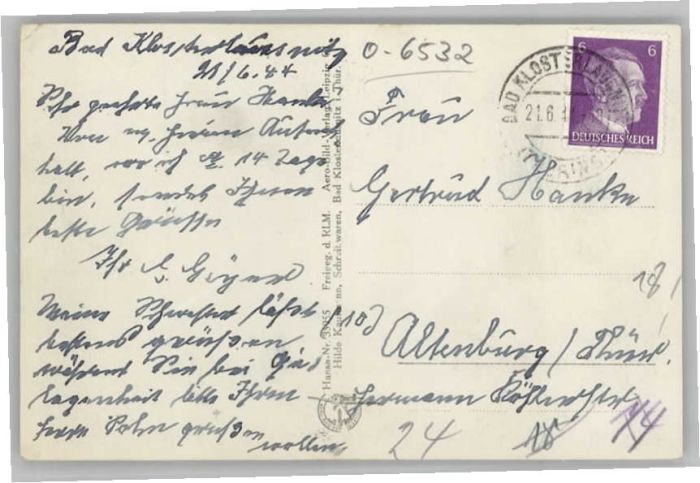 Bad Klosterlausnitz
21/6.44
Sehr geehrte Frau Hanke
Von m. Aufent-
halt, wo ich 14 Tage
bin, sendet Ihnen
beste Grüsse
Ihr
Meine Schwester läßt
bestens grüssen
während Sie bei Ge-
legenheit bitte Ihren
Herrn Sohn grüßen
wollen.
O-6532
Aero-Bild-Verlag, Leipzig
Freigeg. d. RLM.
Hansa-Nr.
Bad Klosterlausnitz/Thür.
Hilde Schreibwaren,
BAD KLOSTERLAUSNITZ
21.6.
(THÜRINGEN)
6 6
DEUTSCHES REICH
Frau
Gertrud Hanke
18
10)
Altenburg/Thür.
Hermann
24 18 14